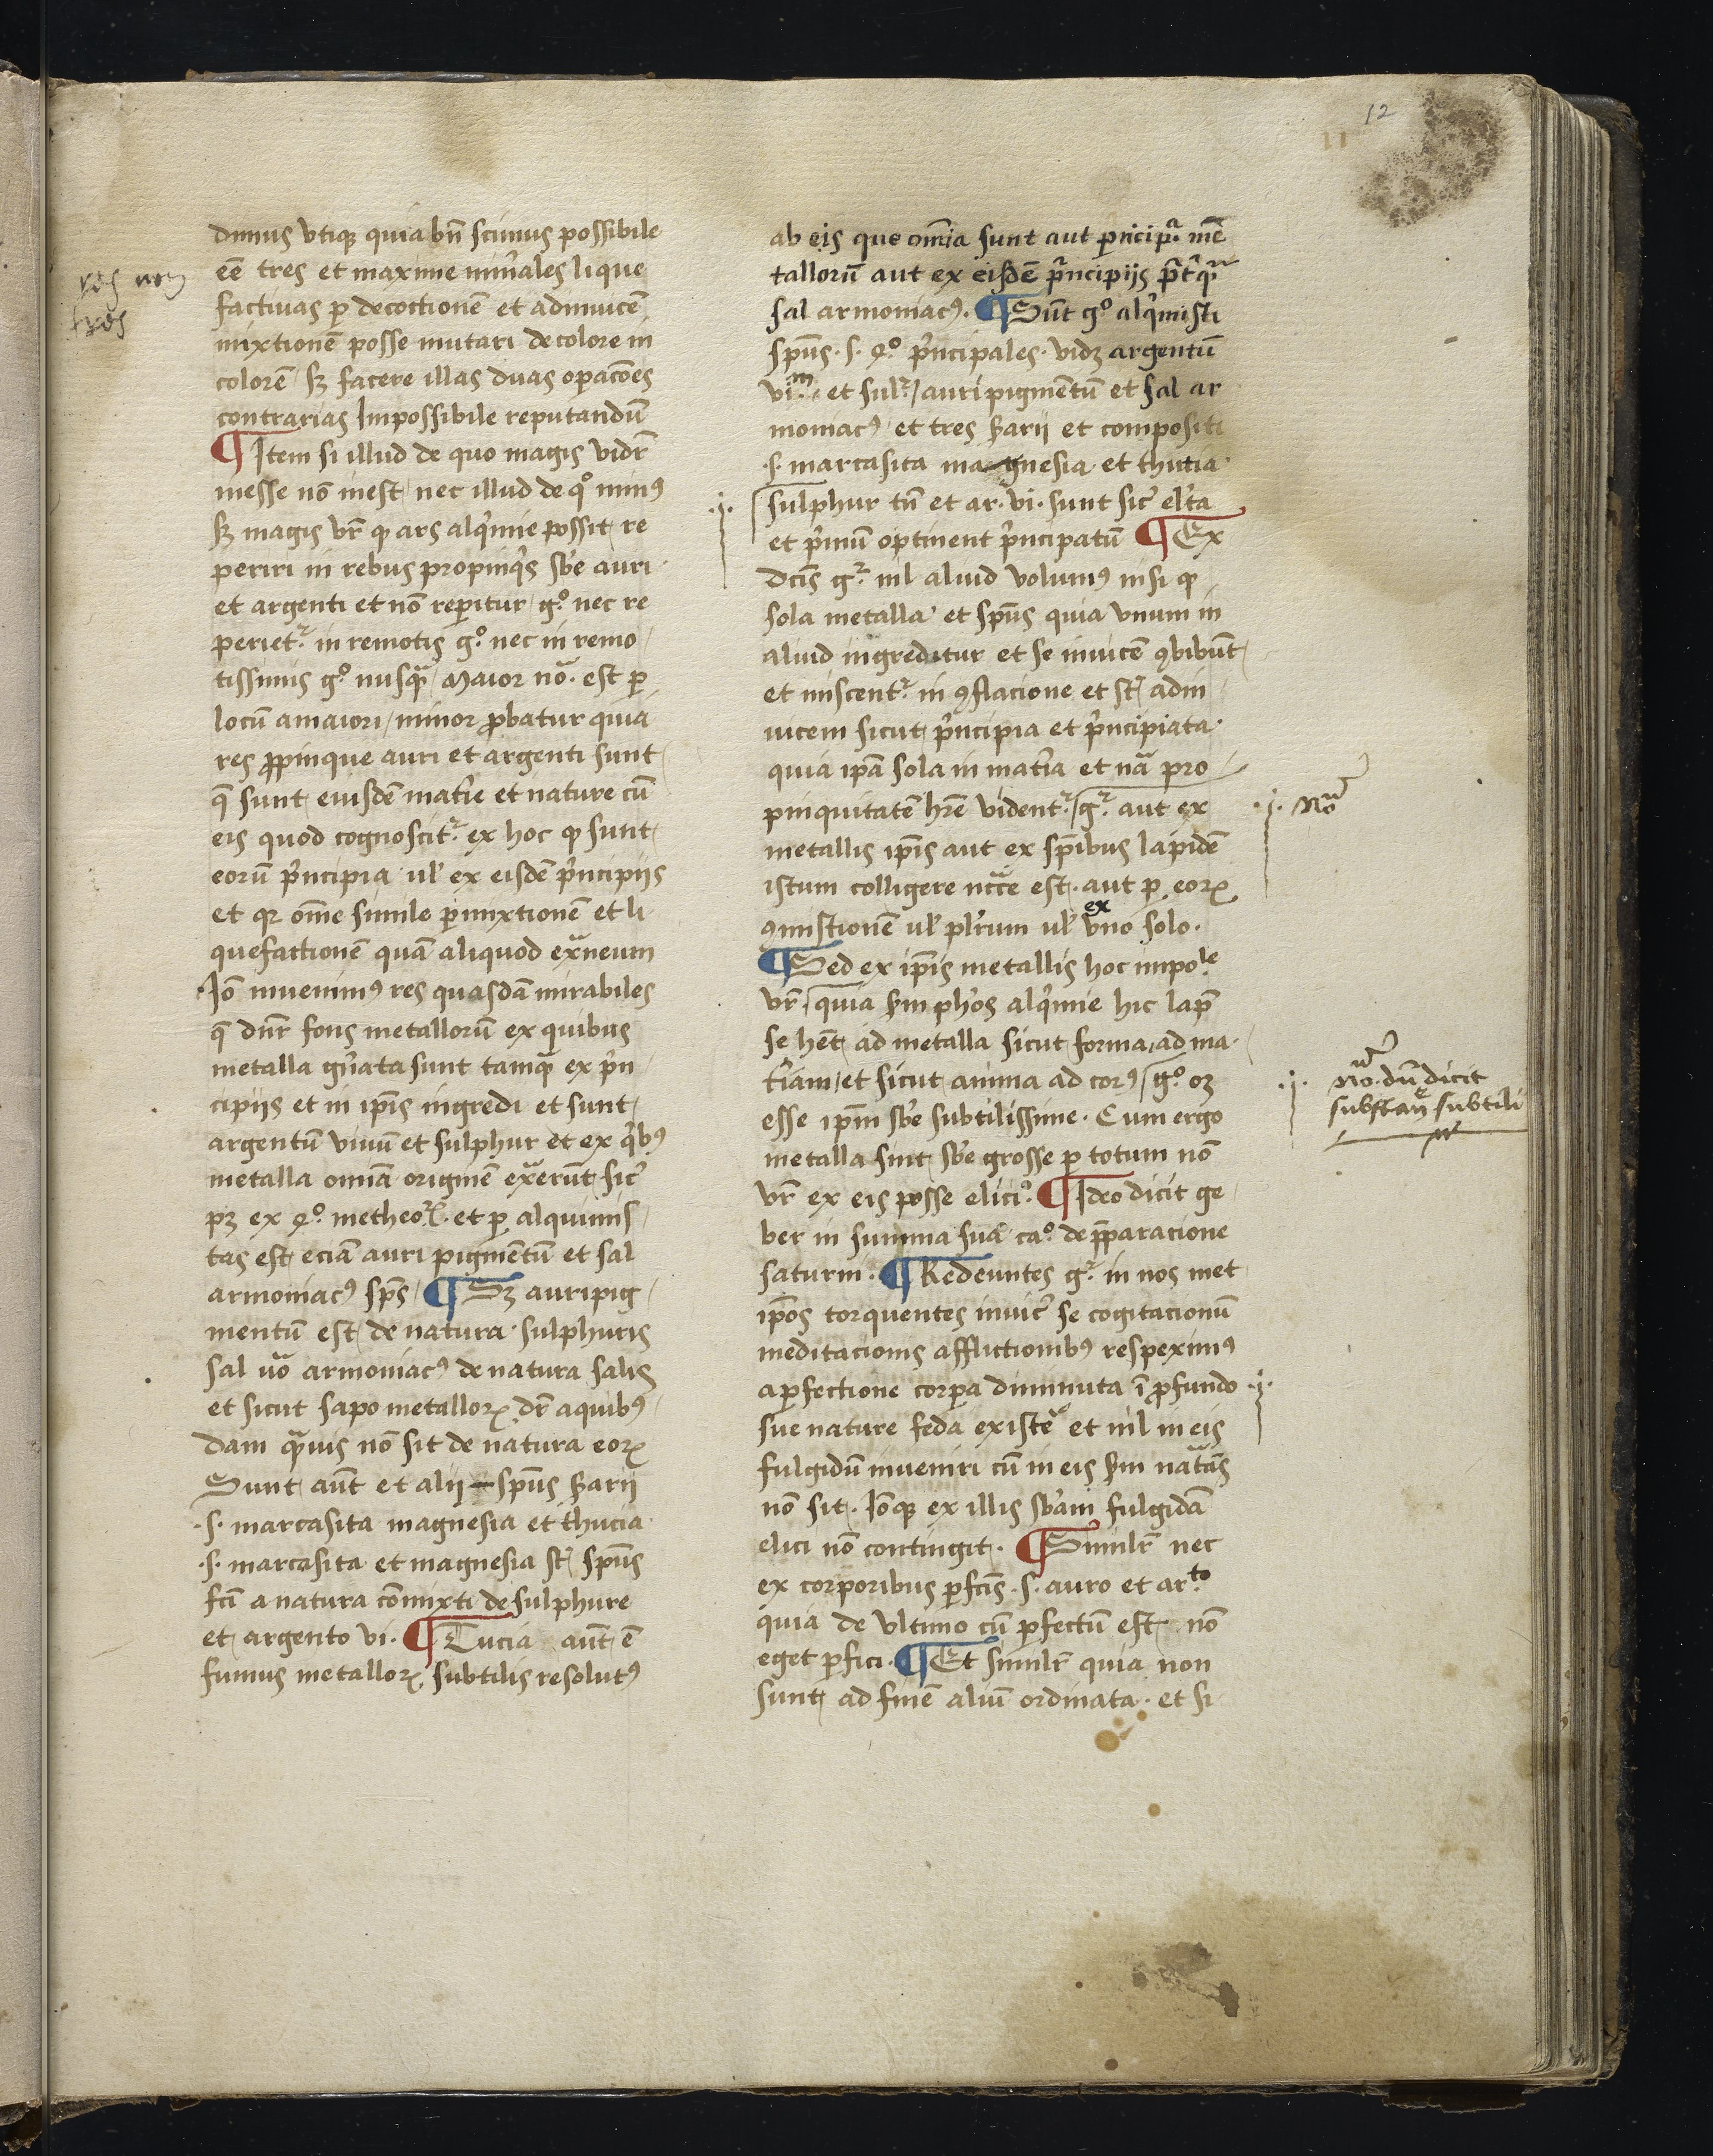 12
11
dimus vtiqꝫ quia bn̄ scimus possibile
eē tres et maxime miñales lique
factiuas ꝑ decoctionē et adinuicē
mixtionē posse mutari de colore in
colorē sꝫ facere illas duas oꝑacōes
contrarias Impossibile reputandū
¶ Item si illud de quo magis vidr̄
inesse nō inest nec illud de qº minꝰ
sꝫ magis vr̄ ꝙ ars alqͥmie possit re
periri in rebus propinqͥs sbe auri
et argenti et nō reꝑitur gº nec re
perietᷣ in remotis gº nec in remo
tissimis gº nusqͣ Maior nōͣ est ꝑ
locū a maiori minor ꝓbatur quia
res ꝓpinque auri et argenti sunt
q̄ sunt eiusdē mat̄ie et nature cū
eis quod cognoscitᷣ ex hoc ꝙ sunt
eorū pͥncipia ul̓ ex eisdē pͥncipijs
et qꝛ oē̄ simile ꝑ mixtionē et li
quefactionē quā aliquod exͣneum
Iō inuenimꝰ res quasdā mirabiles
q̄ dn̄r fons metallorū ex quibus
metalla gn̄ata sunt tamqͣ ex pͥn
cipijs et in ip̄is ingredi et sunt
argentū viuū et sulphur et ex qͥbꝰ
metalla omiā originē exͣerūt sic̄
pꝫ ex 4º metheoꝝ et ꝑ alquimis
tas est eciā auri pigmētū et sal
armoniacꝰ sp̄s ¶ Sꝫ auripig
mentū est de natura sulphuris
sal uō armoniacꝰ de natura salis
et sicut sapo metalloꝝ dr̄ a quibꝰ
dam qͣuis nō sit de natura eoꝝ
Sunt aūt et alij sp̄us sc̄arij
.s. marcasita magnesia et thucia
.s. marcasita et magnesia st̄ sp̄us
fc̄i a natura cōmixti de sulphure
et argento vi. ¶ Tucia aūt ē
fumus metalloꝝ subtilis resolutꝰ
ab eis que omīa sunt aut pͥncipͣ me
tallorū aut ex eisdē pͥncipijs pͣt̄qͣ
sal armoniacꝰ. ¶ Sūt gº alqͥmisti
sp̄us .s. 4º pͥncipales. vidꝫ argentū
vi.ᵐ et sulᷣ auripigmētū et sal ar
moniacꝰ et tres sc̄arij et compositi
.s. marcasita magnesia et thutia
sulphur tn̄ et ar. vi. sunt sic̄ el̄ta
et pͥmū optinent pͥncipatū ¶ Ex
dc̄is gᷣ nil aliud volumꝰ nisi ꝙ
sola metalla et sp̄us quia vnum in
aliud ingreditur et se inuicē ꝯbibūt
et miscentᷣ in ꝯflacione et st̄ adin
uicem sicut pͥncipia et pͥncipiata
quia ip̄a sola in mat̄ia et nā pro
pinquitatē hr̄e videntᷣ gᷣ aut ex
metallis ip̄is aut ex sp̄ibus lapidē
istum colligere nc̄ce est aut ꝑ eoꝝ
ꝯmistionē ul̓ plr̄ium ul̓ ex vno solo.
¶ Sed ex ip̄is metallis hoc impole
vr̄ quia sc̄m ph̄os alqͥmie hic lap̄
se hēt ad metalla sicut forma ad ma
t̄iam et sicut anima ad corꝰ gº oꝫ
esse ip̄m sbe subtilissime. Cum ergo
metalla sint sbe grosse ꝑ totum nō
vr̄ ex eis posse elici. ¶ Ideo dicit ge
ber in summa sua caº de p̄paracione
saturni. ¶ Redeuntes gᷣ in nos met
ip̄os torquentes inuic̄ se cogitacionū
meditacionis afflictionibꝰ respeximꝰ
a ꝑfectione corꝑa diminuta ī ꝓfundo
sue nature feda existēͣ et nil in eis
fulgidū inueniri cū in eis sc̄m natūͣs
nō sit. Iōqꝫ ex illis sb̄am fulgidā
elici nō contingit. ¶ Similr̄ nec
ex corporibus ꝑfc̄is .s. auro et ar.ᵗᵒ
quia de vltimo cū ꝑfectū est nō
eget ꝑfici. ¶ Et similr̄ quia non
sunt ad finē aliū ordinata. et si
.j.
.j. Nōͣ
.j. nōͣ. dū dicit
subſtan̄ subtili
.j.